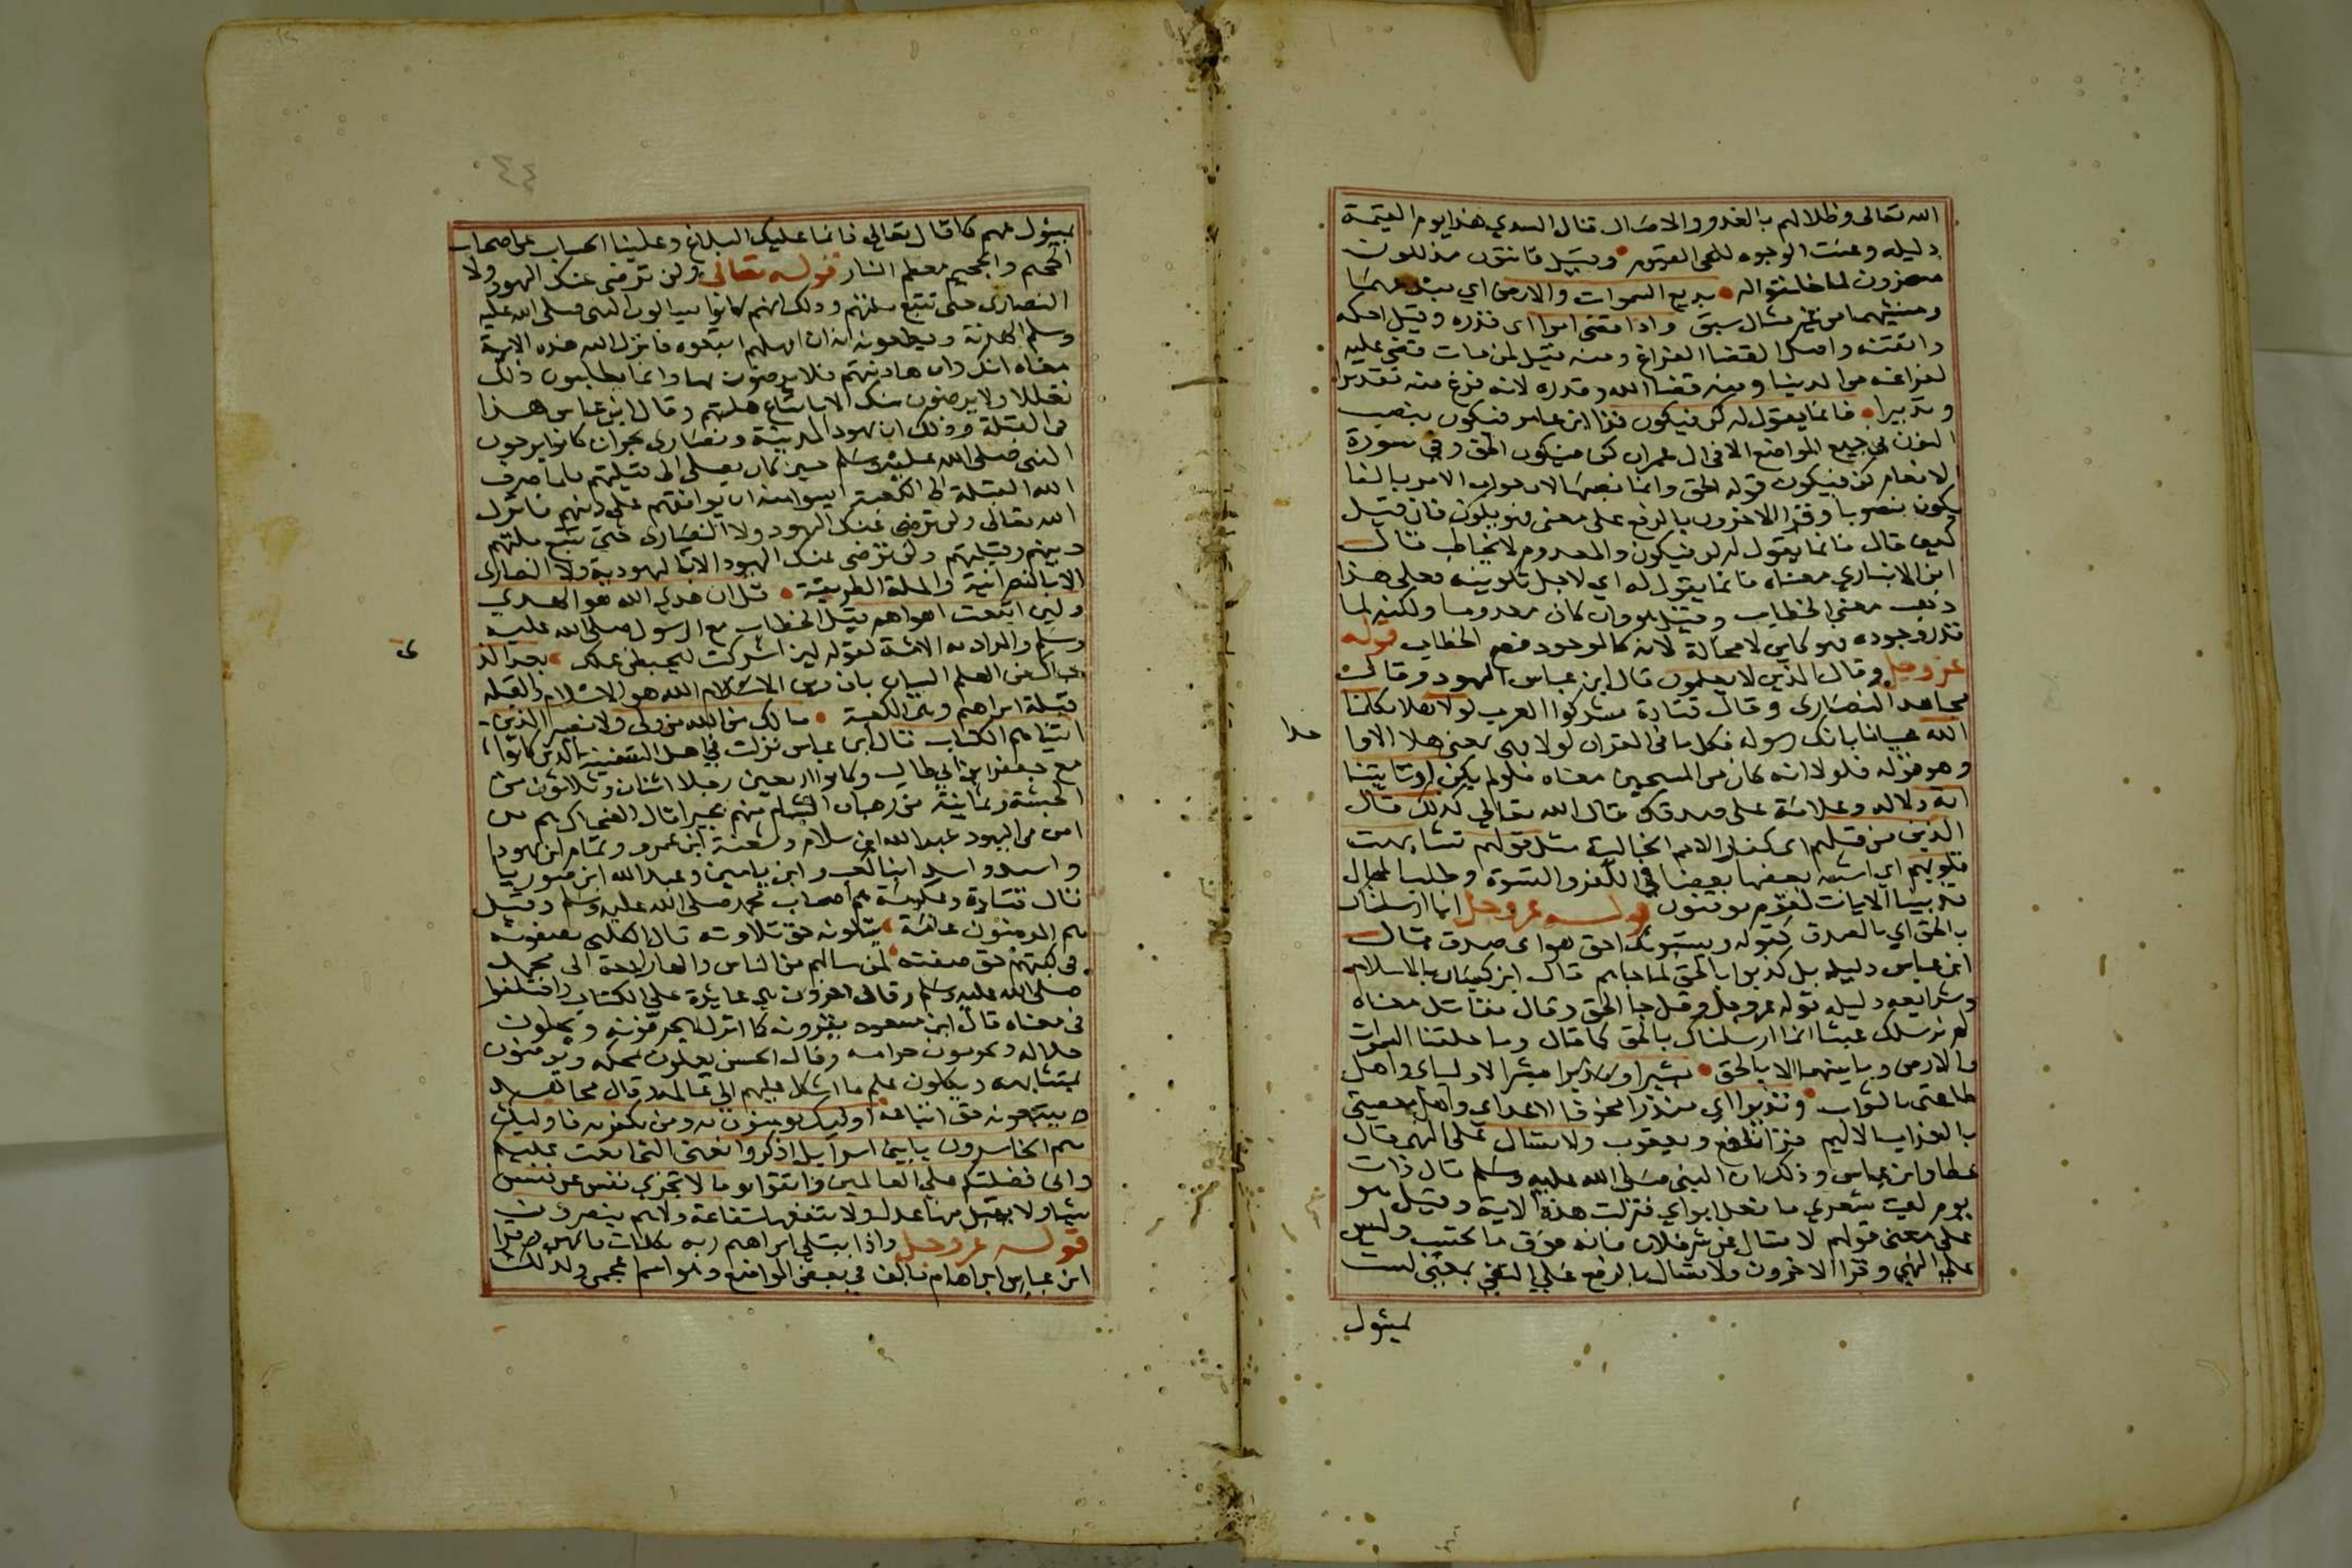 الله تعالى وظلالهم بالغدو والاصال قال السدي هذا يوم القيمة
دليله وعنت الوجوه للحى القيوم وقيل قانتون مذللون
مسخرون لما خلقوا له بديع السموات والارض اي مبتدعهما
ومنشيهما من غير مثال سبق واذا قضى امرا اى قدره وقيل احكمه
واتقنه واصل القضا الفراغ ومنه قيل لمن مات قضى عليه
لفراغه من الدنيا ومنه قضا الله وقدره لانه فرغ منه تقديرا
وتدبيرا فانما يقول له كن فيكون قرا ابن عامر فيكون بنصب
النون في جميع المواضع الا في ال عمران كن فيكون الحق وفي سورة
الانعام كن فيكون قوله الحق وانما نصبها لان جواب الامر بالفا
يكون منصوبا وقرا الاخرون بالرفع على معنى فهو يكون فان قيل
كيف قال فانما يقول له كن فيكون والمعدوم لا يخاطب قال
ابن الانباري معناه فانما يقول له اي لاجل تكوينه فعلى هذا
ذهب معنى الخطاب وقيل هو وان كان معدوما ولكنه لما
قدر وجوده وهو كاين لا محالة لانه كالموجود فصح الخطاب قوله
عز وجل وقال الذين لا يعلمون قال ابن عباس اليهود وقال
مجاهد النصارى وقال قتادة مشركوا العرب لولا هلا يكلمنا
الله عيانا بانك رسوله فكل ما في القران لولا فهى بمعنى هلا الا واحدا
وهو قوله فلولا انه كان من المسبحين معناه فلو لم يكن او تاتينا
اية دلالة وعلامة على صدقك قال الله تعالى كذلك قال
الذين من قبلهم اى كفار الامم الخالية مثل قولهم تشابهت
قلوبهم اي اشبه بعضها بعضا في الكفر والقسوة وطلب المحال
قد بينا الايات لقوم يوقنون قوله عز وجل انا ارسلناك
بالحق اي بالصدق كقوله ويستنبئونك احق هو اى صدق قال
ابن عباس دليله بل كذبوا بالحق لما جاهم قال ابن كيسان بالاسلام
وشرايعه دليله قوله عز وجل وقل جا الحق وقال مقاتل معناه
لم نرسلك عبثا انما ارسلناك بالحق كما قال وما خلقنا السموات
والارض وما بينهما الا بالحق بشيرا ونذيرا مبشرا لاوليائ واهل
طاعتى بالثواب ونذيرا اي منذرا مخوفا لاعداي واهل معصيتي
بالعذاب الاليم قرا نافع ويعقوب ولا تسال على النهى قال
عطا وابن عباس وذلك ان النبي صلى الله عليه وسلم قال ذات
يوم ليت شعري ما فعل ابواي فنزلت هذه الاية وقيل هو
على معنى قولهم لا تسال عن شر فلان فانه فوق ما تحتسب وليس
على النهي وقرا الاخرون ولا تسال بالرفع على النفي بمعنى لست
بمسئول
بمسئول عنهم كما قال تعالى فانما عليك البلاغ وعلينا الحساب عن اصحاب
الجحيم والجحيم معظم النار قوله تعالى ولن ترضى عنك اليهود ولا
النصارى حتى تتبع ملتهم وذلك انهم كانوا يسالون النبي صلى الله عليه
وسلم الهدنة ويطمعونه انه ان امهلهم اتبعوه فانزل الله هذه الاية
معناه انك وان هادنتهم فلا يرضون بها وانما يطلبون ذلك
تعللا ولا يرضون منك الا باتباع ملتهم وقال ابن عباس هذا
في القبلة وذلك ان يهود المدينة ونصارى نجران كانوا يرجون
النبي صلى الله عليه وسلم حين كان يصلى الى قبلتهم فلما صرف
الله القبلة الى الكعبة ايسوا منه ان يوافقهم على دينهم فانزل
الله تعالى ولن ترضى عنك اليهود ولا النصارى حتى تتبع ملتهم
دينهم وقبلتهم ولن ترضى عنك اليهود الا باليهودية ولا النصارى
الا بالنصرانية والملة الطريقة قل ان هدى الله هو الهدي
ولين اتبعت اهواهم قيل الخطاب مع الرسول صلى الله عليه
وسلم والمراد به الامة لقوله لين اشركت ليحبطن عملك بعد الذي
جاك من العلم البيان بان دين الله هو الاسلام والقبلة
قبلة ابراهيم وهى الكعبة مالك من الله من ولى ولا نصير الذين
اتيناهم الكتاب قال ابن عباس نزلت في اهل السفينة الذين كانوا
مع جعفر ابن ابي طالب وكانوا اربعين رجلا اثنان وثلاثون من
الحبشة وثمانية من رهبان الشام منهم بحيرا قال الضحاك هم من
امن من اليهود عبد الله ابن سلام وشعبة ابن عمرو وتمام ابن يهودا
واسد واسيد ابنا كعب وابن يامين وعبد الله ابن صوريا
قال قتادة وعكرمة هم اصحاب محمد صلى الله عليه وسلم وقيل
هم المومنون عامة يتلونه حق تلاوته قال الكلبى يصفونه
في كتبهم حق صفته لمن سالهم من الناس والها راجعة الى محمد
صلى الله عليه وسلم وقال اخرون هي عايدة على الكتاب واختلفوا
في معناه قال ابن مسعود يقرونه كما انزل ولا يحرفونه ويحلون
حلاله ويحرمون حرامه وقال الحسن يعملون بمحكمه ويومنون
بمتشابهه ويكلون علم ما اشكل عليهم الى عالمه وقال مجاهد
يتبعونه حق اتباعه اوليك يومنون به ومن يكفر به فاوليك
هم الخاسرون يا بني اسرايل اذكروا نعمتي التي انعمت عليكم
وانى فضلتكم على العالمين واتقوا يوما لا تجزي نفس عن نفس
شيا ولا يقبل منها عدل ولا تنفعها شفاعة ولاهم ينصرون
قوله عز وجل واذ ابتلى ابراهيم ربه بكلمات فاتمهن قرا
ابن عباس ابراهام بالف في بعض المواضع وهو اسم اعجمى ولذلك